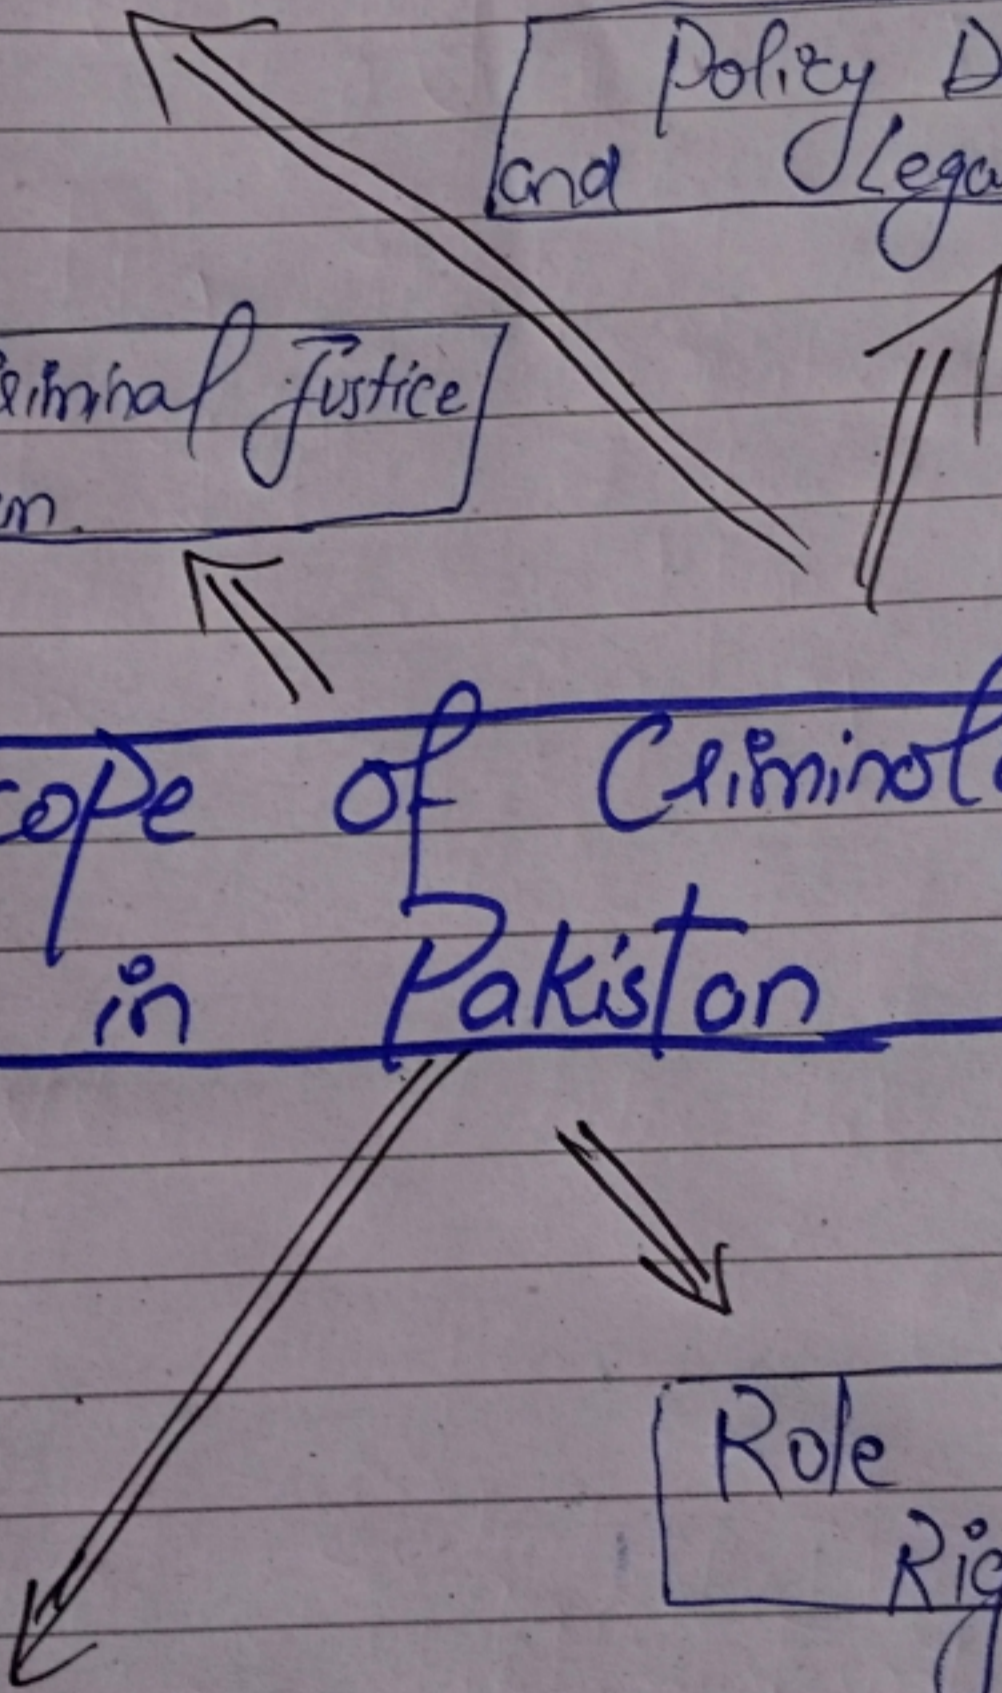 Policy D
and Lega
riminal Justice
m.
cope of Criminol
in Pakistan
Role
Rig